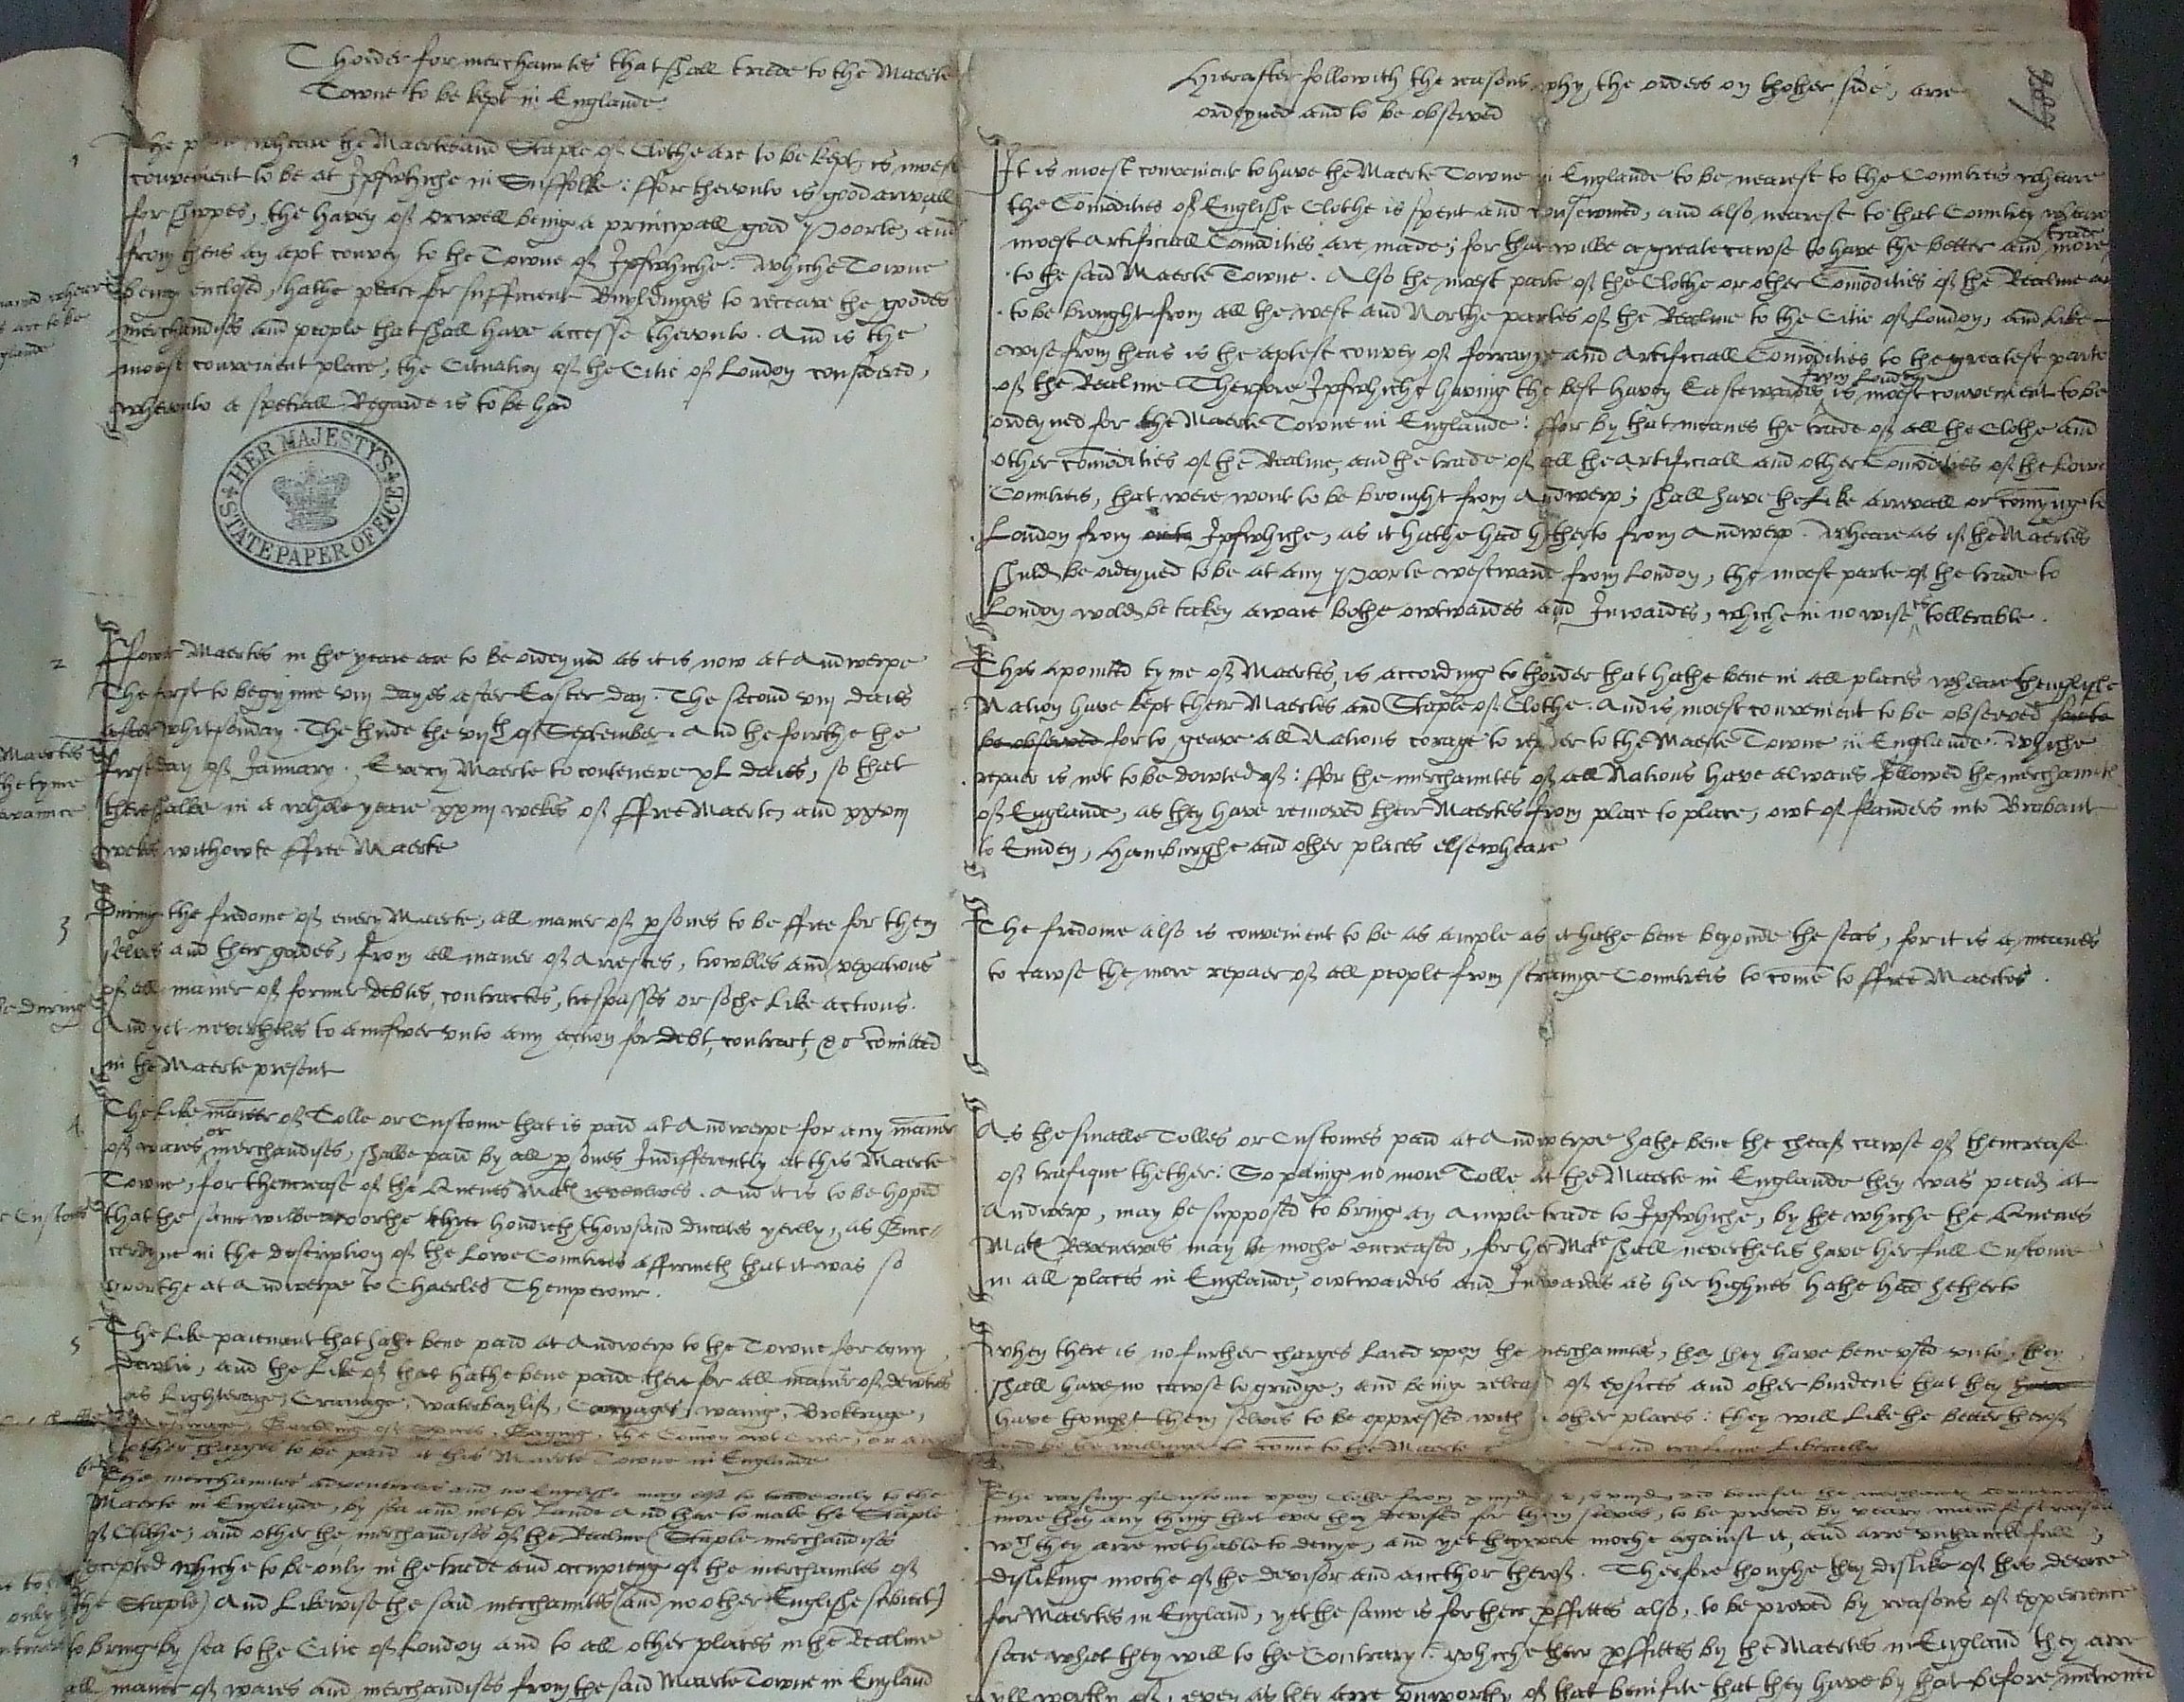 Thorder for merchauntes that shall trade to the Maerte
Towne to be kept in Englande
1 The wheare the Maertes and Staple of Clothe are to be kept, is moest
convenient to be at Ipswhiche in Suffolke : ffor therunto is good arivall
for Shippes, the haven of Orwell being a principall good Poorte, and
from thens an apt convey to the Towne of Ipswhiche. Whiche Towne
being enclosed, hathe place for sufficient Buyldinges to receave the goodes
merchandises and people that shall have accesse therunto. And is the
moest convenient place, the Cituation of the Citie of London considered,
wherunto a speciall Regarde is to be had
HER MAJESTY'S
STATE PAPER OFFICE
2 ffowr Maertes in the yeare are to be ordeyned as it is now at Andwerpe
The first to begynne viij dayes after Easter day. The second viij daies
after Whitsonday. The thirde the of September. And the fourthe the
first day of January. Every Maerte to contenewe xl daies, so that
there shalbe in a whole yeare xxiiij wekes of ffree Maerte, and xxviij
wekes withowte ffree Maerte
3 During the fredome of every Maerte, all maner of psones to be ffree for them
selves and their goodes, from all maner of Arrestes, trowbles and vexations
of all maner of former debtes, contractes, trespasses or soche like actions.
And yet nevertheles to aunswer unto any action for debt, contract, &c comitted
in the Maerte present
4 The like maner of Tolle or Custome that is paid at Andwerpe for any maner
of wares or merchandises, shalbe paid by all psones Indifferently at this Maerte
Towne, for thencrease of the Quenes Matis revenewes. And it is to be hoped
that the same wilbe worthe three hondreth thowsand ducates yerely, as Guic=
cerdyne in the description of the Lowe Countries affirmeth that it was so
woorthe at Andwerpe to Chaerles Themperour.
5 The like paiement that hathe bene paid at Andwerp to the Towne for any
dewtie, and the like of that hathe bene paide there for all maner of dewties
as Lighterage, Cranage, waterbaylif, Cariage, waing, Brokerage,
other charges to be paid at this Maerte Towne in Englande
6 The merchauntes adventurers and no Englishe man els to trade only to the
Maerte in Englande, by sea and not by Lande And thare to make the Staple
of Clothe, and other the merchandises of the Realme (Staple merchandises
excepted whiche to be only in the trade and occupieng of the merchauntes of
the Staple) And Likewise the said merchauntes (and no other Englishe subiect)
to bring by sea to the Citie of London and to all other places in the Realme
all maner of wares and merchandises from the said Maerte Towne in England
Hierafter followith the reasons why the orders on thother side, arre
ordeyned and to be observed
It is moest convenient to have the Maerte Towne in Englande to be nearest to the Countreis wheare
the Comodities of Englishe Clothe is spent and consewmed, and also nearest to that Countrey wheare
moest Artificiall Comodities are made; for that wilbe a greate cawse to have the better and more trade
to the said Maerte Towne. Also the moest parte of the Clothe or other Comodities of the Realme are
to be brought from all the west and Northe partes of the Realme to the Citie of London, and Like=
wise from thens is the aptest convey of forrayne and Artificiall Comodities to the greatest parte
of the Realme Therfore Ipswhiche having the best haven Eastwardes from London is moest convenient to be
ordeyned for the Maerte Towne in Englande : ffor by that meanes the trade of all the Clothe and
other comodities of the Realme, and the trade of all the Artificiall and other Comodities of the Lowe
Countreis, that were wont to be brought from Andwerp; shall have the Like arivall or coming to
London from Ipswhiche, as it hathe had hitherto from Andwerp. Wheareas if the Maertes
shuld be ordeyned to be at any Poorte westwarde from London, the moest parte of the trade to
London wold be taken awaie bothe owtwardes and Inwardes, whiche in no wise is tollerable.
This apointed tyme of Maertes, is according to thorder that hathe bene in all places wheare thenglishe
Nation have kept their Maertes and Staple of Clothe. And is moest convenient to be observed for to
be observed for to geave all Nations corage to repaier to the Maerte Towne in Englande. Whiche
repaier is not to be dowted of : ffor the merchauntes of all Nations have alwaies followed the merchauntes
of Englande, as they have removed their Maertes from place to place, owt of flanders into Brabant
to Emden, Hamburghe and other places elsewheare
The fredome also is convenient to be as ample as it hathe bene beyonde the seas, for it is a meanes
to cawse the more repaier of all people from strainge Countreis to come to ffree Maertes.
As the smalle Tolles or Customes paid at Andwerpe hathe bene the cheaf cawse of thencrease
of trafique thether : So paieng no more Tolle at the Maerte in Englande then was paid at
Andwerp, may be supposed to bring an ample trade to Ipswhiche, by the whiche the Quenes
Matis Revenewes may be moche encreased, for her Matie shall neverthelis have her full Custome
in all places in Englande, owtwardes and Inwardes as her highnes hathe had hetherto
When there is no further charges laied upon the merchauntes, then they have bene used unto, they
shall have no cawse to grudge, and being released of exsices and other burdens that they have
have thought them selves to be oppressed with in other places : they will like the better therof
and be the willinger to come to the Maerte and trafique liberally
The raysing of Custome upon Clothe from
more then any thing that ever they devised for them selves, to be proved by manifest reason
wch they arre not hable to denye, and yet they were moche against it, and arre unthanckfull,
disliking moche of the devisor and aucthor therof. Therfore thoughe they dislike of this devise
for Maertes in England, yet the same is for their pffittes also, to be proved by reasons of experience
saie what they will to the Contrary. Whiche their pffittes by the Maertes in England they arre
yll worthy of, even as they arre unworthy of that benifite that they have by that before mencioned